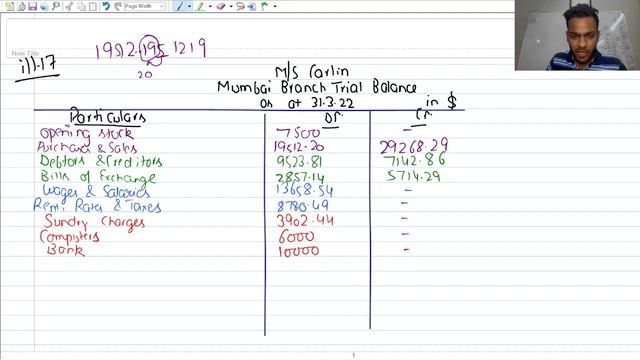 Page Width
Note Title
19512.195 1219
20
ill.17
M/S Carlin
Mumbai Branch Trial Balance
as at 31.3.22 in $
Particulars Dr. Cr.
Opening stock 7500 -
Purchase & Sales 19512.20 29268.29
Debtors & Creditors 9523.81 7142.86
Bills of Exchange 2857.14 5714.29
Wages & Salaries 13658.54 -
Rent Rates & Taxes 8780.49 -
Sundry Charges 3902.44 -
Computers 6000 -
Bank 10000 -
1